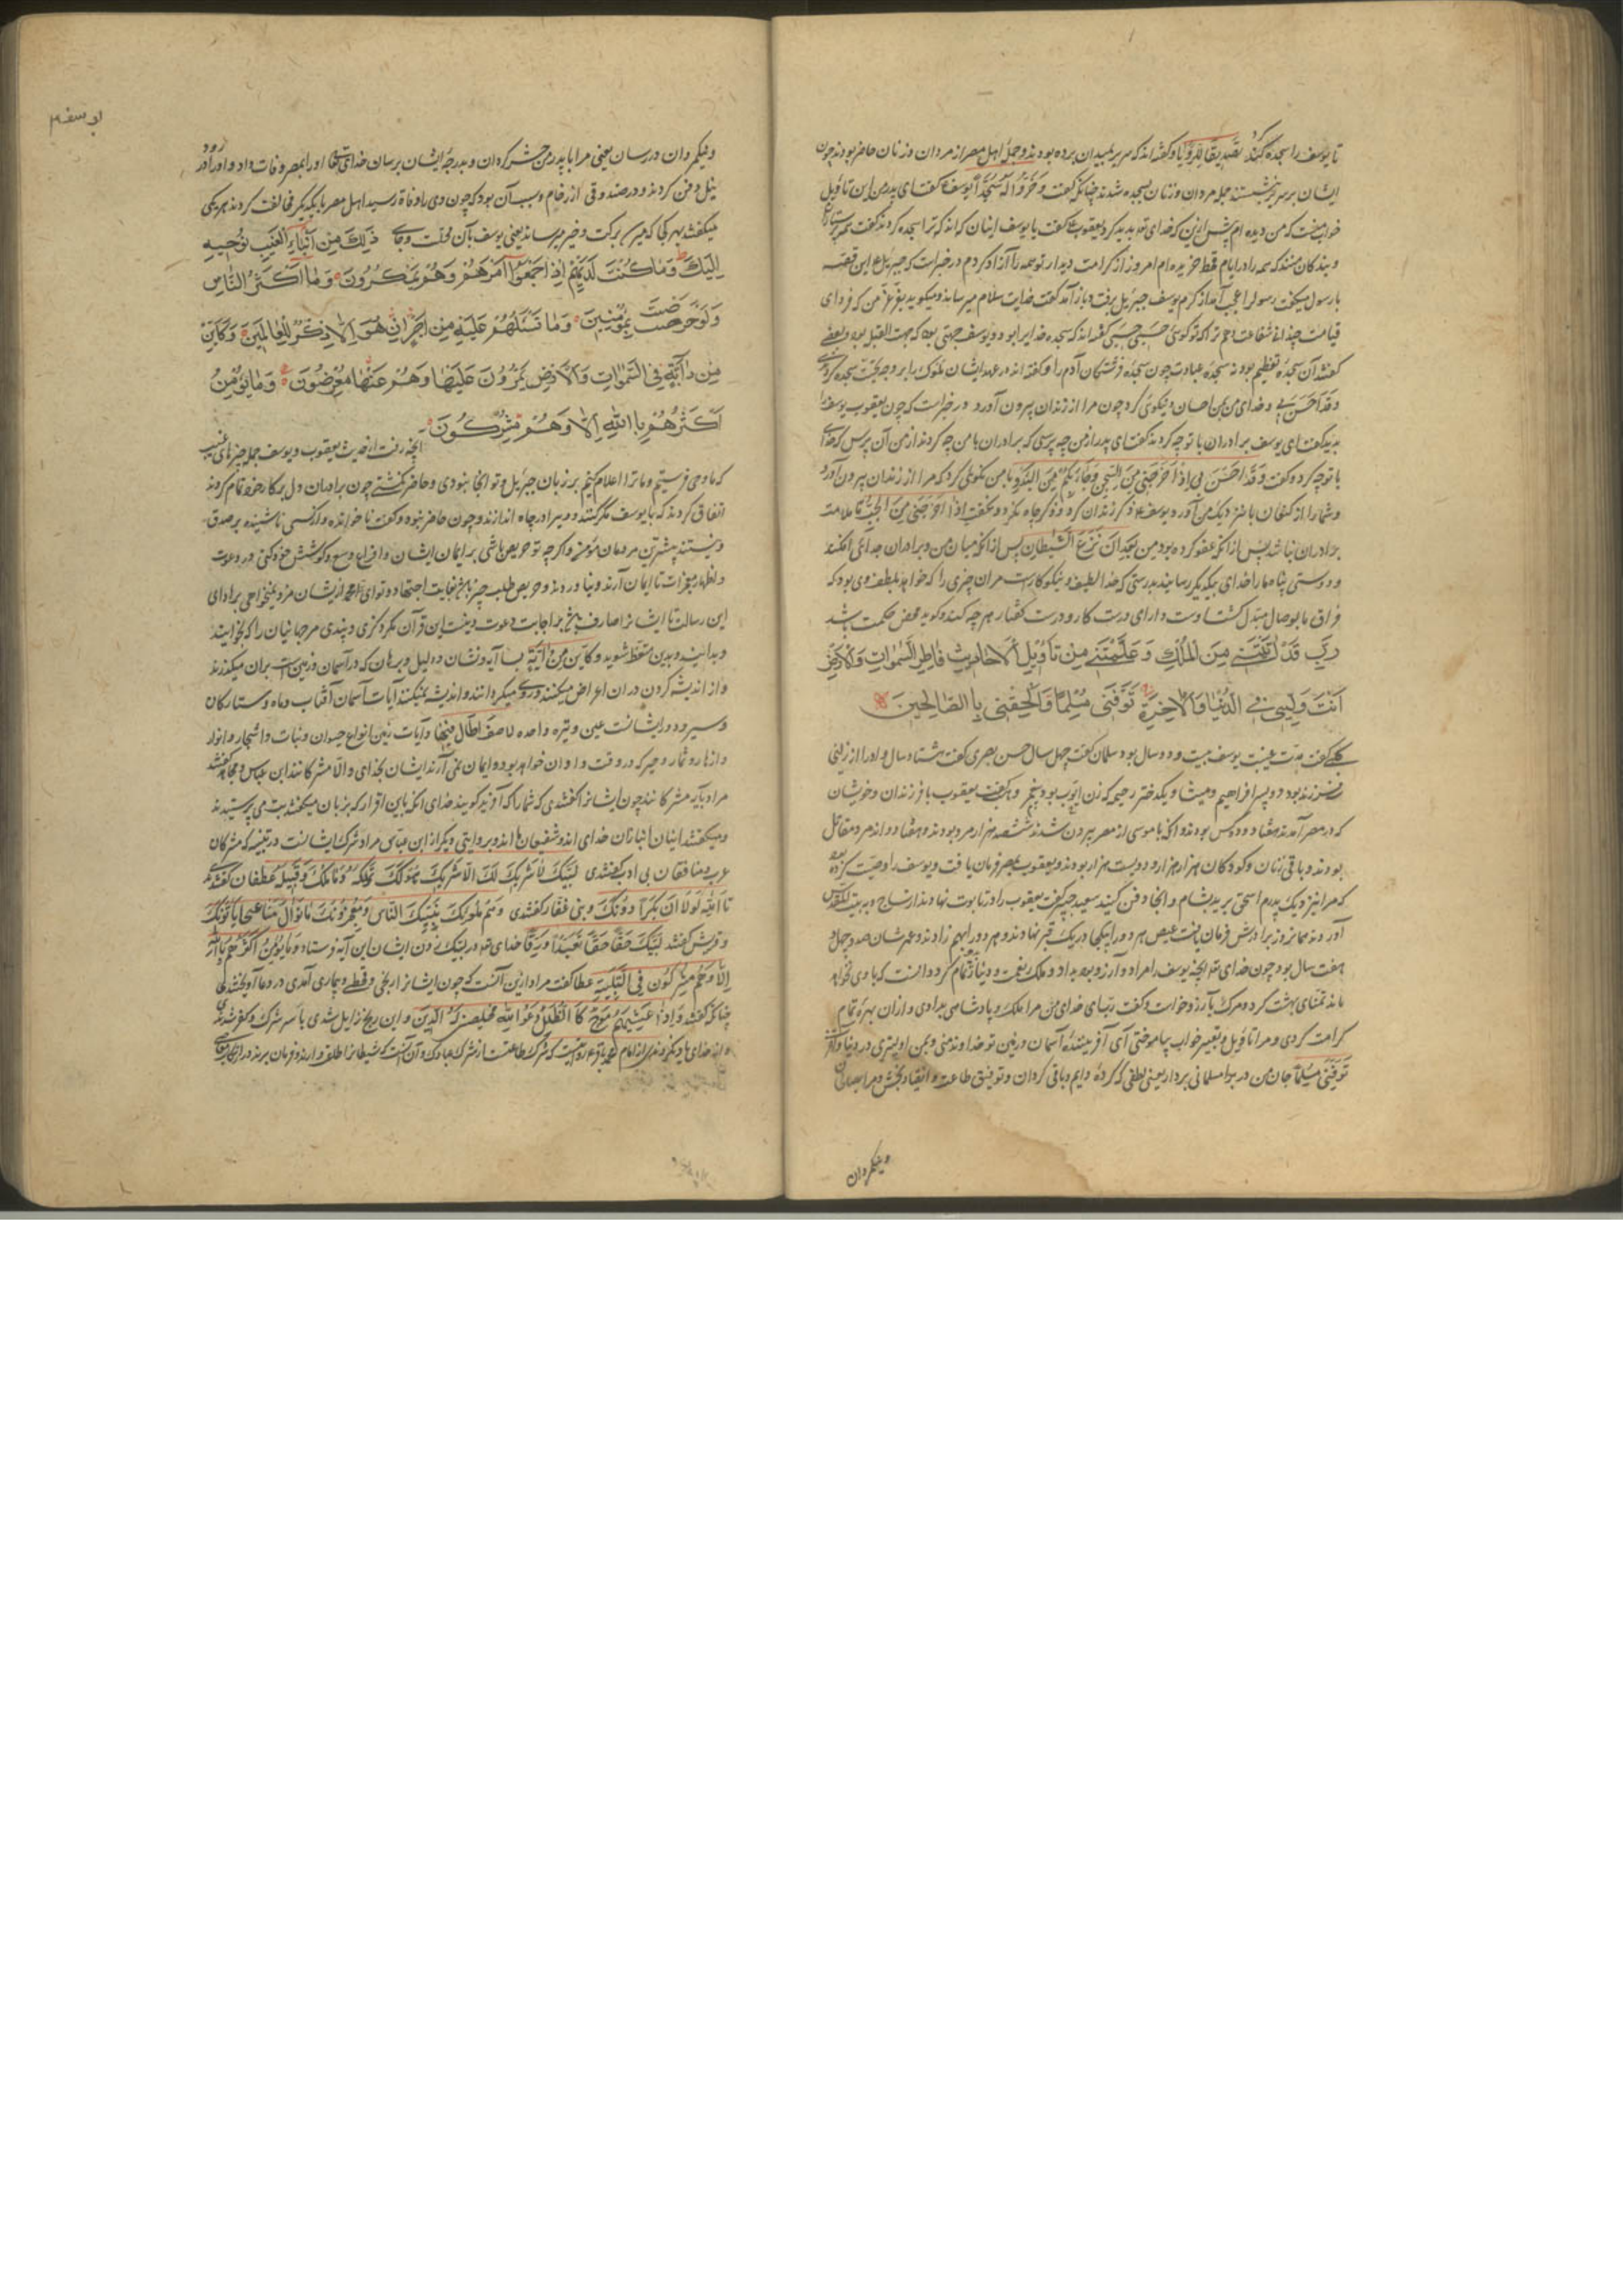 تا یوسف را سجده کنند تصدیقا للرؤیا و گفته اند که سریر بمیدان برده بودند و جملهٔ اهل مصر از مردان و زنان حاضر بودند چون
ایشان بر سریر نشستند جمله مردان و زنان بسجده شدند چنانکه گفت وخروا له سجدا یوسف گفت ای پدر من این تاویل
خواب منست که من دیده ام پیش ازین که خدای پدید کرد یعقوب گفت یا یوسف اینان که اند که ترا سجده کردند گفت
و بندکان منند که همه را در ایام قحط خریده ام امروز از کرامت دیدار تو همه را آزاد کردم در خبر است که جبرئیل این قصه
با رسول میکفت رسول را عجب آمد از کرم یوسف جبرئیل برفت و باز آمد گفت خدایت سلام میرساند و میکوید بعزت من که فردای
قیامت چندان شفاعت دهم ترا که تو کوئی حسبی حسبی گفته اند که سجده خدایرا بود و یوسف جهتی بود که جهت القبله بود و بعضی
کفتند آن سجدهٔ تعظیم بود نه سجدهٔ عبادت چون سجدهٔ فرشتکان آدم را و گفته اند در عهد ایشان ملوک را بر وجه تحیت سجده کردندی
وقد احسن بی و خدای من بمن احسان و نیکوئی کرد چون مرا از زندان بیرون آورد در خبر است که چون یعقوب یوسف را
بدید گفت ای یوسف برادران با تو چه کردند گفت ای پدر از من چه پرسی که برادران با من چه کردند از من آن پرس که خدای
با تو چه کرد و گفت وقد احسن بی اذ اخرجنی من السجن وجاء بکم من البدو با من نیکوئی کرد که مرا از زندان بیرون آورد
و شما را از کنعان بنزدیک من آورد یوسف ذکر زندان کرد و ذکر چاه نکرد و نکفت اذ اخرجنی من الجب تا ملامت
برادران نباشد پس از آنکه عفو کرده بود من بعد ان نزغ الشیطان پس از آنکه میان من و برادران جدائی افکند
و دوستی بتباه ما را خدای بیکدیگر رسانید بدرستی که خدا لطیف و نیکوکارست مر آن چیزی را که خواهد بلطف وی بود که
فراق ما بوصال مبدل کشت اوست دارای درست کار و درست گفتار هر چه کند و کوید محض حکمت باشد
رب قد اتیتنی من الملک وعلمتنی من تاویل الاحادیث فاطر السموات والارض
انت ولیی فی الدنیا والاخرة توفنی مسلما والحقنی باالصالحین
کلبی گفت مدت غیبت یوسف بیست و دو سال بود سلمان گفت چهل سال حسن بصری گفت هشتاد سال و او را از زلیخا
فرزند بود دو پسر افراهیم و میشا و یک دختر رحیمه که زن ایوب بود و گفت یعقوب با فرزندان و خویشان
که در مصر آمدند هفتاد و دو کس بودند و آنکه با موسی از مصر بیرون شدند ششصد هزار مرد بودند و هفتاد و اند مرد مقاتل
بودند و باقی زنان و کودکان هزار هزار و دویست هزار بودند و یعقوب بمصر فرمان یافت و یوسف را وصیت کرده بود
که مرا نیز نزدیک پدرم اسحق برید بشام و آنجا دفن کنید سعید جبیر گفت یعقوب را در تابوت نهادند از ساج و به بیت المقدس
آوردند همان روز برادرش فرمان یافت عیص هر دو را بیکجا در یک قبر نهادند و هر دو را بهم زادند و عمرشان صد و چهل و
هفت سال بود چون خدای تعالی یوسف را مراد و آرزو بداد و ملک و نعمت دنیا تمام کرد دانست که با وی نخواهد
ماند تمنای بهشت کرد و مرک بآرزو خواست و گفت رب ای خدای من مرا ملک و پادشاهی بدادی و از آن بهرهٔ تمام
کرامت کردی و مرا تاویل و تعبیر خواب بیاموختی ای آفرینندهٔ آسمان و زمین تو خداوند منی و بمن اولیتری در دنیا و آخرت
توفنی مسلما جان من در مسلمانی بردار یعنی لطفی که کرده دایم و باقی کردان و توفیق طاعت و انقیاد بخش و مرا بصالحان
و نیکمردان
یوسف
و نیکمردان در رسان یعنی مرا با پدر من حشر کردان و بدرجهٔ ایشان برسان خدای تعالی او را بمصر وفات داد و او را در رود
نیل دفن کردند و در صندوقی از رخام و سبب آن بود که چون وی را وفات رسید اهل مصر با یکدیکر مخالفت کردند هر یکی
میکفتند بهر کجا که برکت و خیر میرساند یعنی یوسف بآن محلت و جای ذلک من انباء الغیب نوحیه
الیک وما کنت لدیهم اذ اجمعوا امرهم وهم یمکرون وما اکثر الناس
ولو حرصت بمؤمنین وما تسئلهم علیه من اجر ان هو الا ذکر للعالمین وکاین
من دآیة فی السموات والارض یمرون علیها وهم عنها معرضون وما یؤمن
اکثرهم باالله الا وهم مشرکون آنچه رفت از حدیث یعقوب و یوسف جمله خبرهای غیب
که ما وحی فرستیم و ما ترا اعلام کنیم بر زبان جبرئیل و تو آنجا نبودی و حاضر نکشتی چون برادران دل بر کار خود تمام کردند
اتفاق کردند که با یوسف مکر کنند و ویرا در چاه اندازند و چون حاضر نبود و کتب ناخوانده و از کسی ناشنیده بر صدق
و نیستند بیشترین مردمان مؤمن و اکرچه تو حریص باشی بر ایمان ایشان و افراغ وسع و کوشش خود کنی در دعوت
و اظهار معجزات تا ایمان آرند و نیاوردند و حریص طلب چیز باشد بغایت اجتهاد و تو ای محمد از ایشان مزد نمیخواهی بر ادای
این رسالت تا ایشانرا صارف باشد بر اجابت دعوت و نیست این قرآن مکر ذکری و پندی مر جهانیان را که بخوانند
و بدانند و بدین متعظ شوید وکاین من آیة بسا آیه و نشان و دلیل و برهان که در آسمان و زمین است بر آن میکذرند
و از اندیشه کردن در آن اعراض میکنند و روی میکردانند و اندیشه نمیکنند آیات آسمان آفتاب و ماه و ستارکان
و آیات زمین انواع حیوان و نبات و اشجار و انوار
و ازهار و ثمار و جز که در وقت و اوان خواهد بود و ایمان نمی آرند ایشان بخدای و الا مشرکانند ابن عباس و مجاهد گفتند
مراد بآیه مشرکانند چون ایشانرا گفتندی که شما را که آفرید کویند خدای آنکه باین اقرار که بزبان میکفتند بت می پرستیدند
و میکفتند اینان انبازان خدای اند و شفیعان ما اند و بروایتی دیکر از ابن عباس مراد شرک ایشانست در تلبیه که مشرکان
عرب و منافقان بی ادب گفتندی لبیک لا شریک لک الا شریک هو لک تملکه وما ملک و قبیله غطفان گفتندی
و قریش گفتند لبیک حقا حقا تعبدا ورقا خدای تعالی در لبیک زدن ایشان این آیه فرستاد وما یؤمن اکثرهم بالله
الا وهم مشرکون فی التلبیة عطا گفت مراد ازین آنست که چون ایشانرا رنجی و قحطی و بیماری آمدی در دعا آویختندی
چنانکه گفت واذا غشیهم موج کا الظلل دعوا الله مخلصین له الدین و این رنج زایل شدی با سر شرک و کفر شدندی